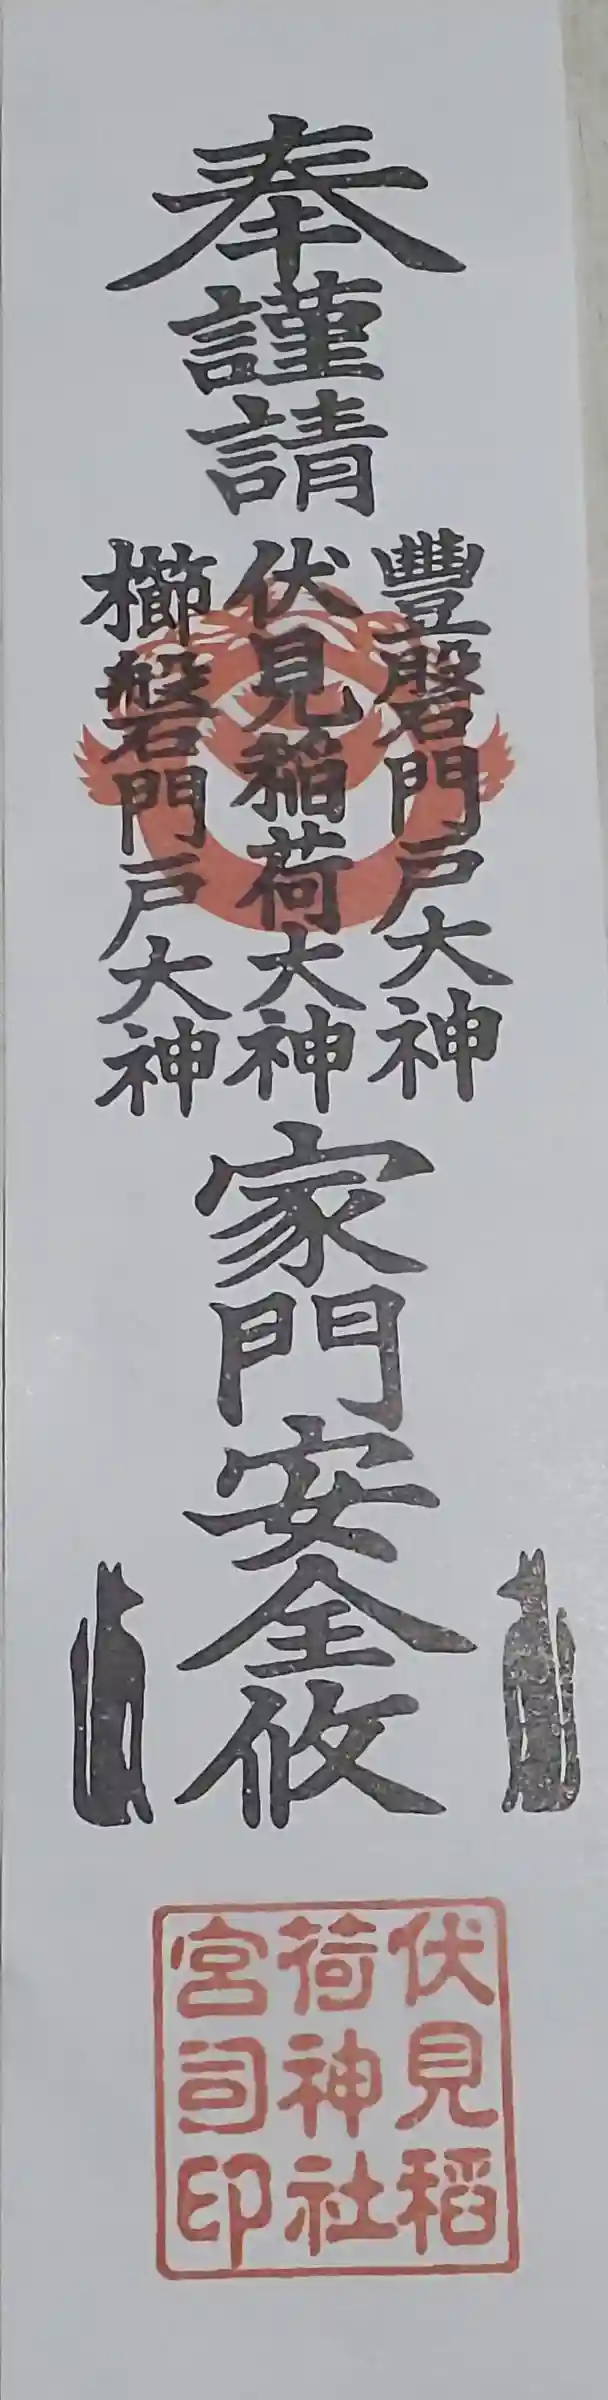 奉
謹請
豐磐門戸大神
伏見稲荷大神
櫛磐門戸大神
家門安全攸
伏見稻
荷神社
宮司印